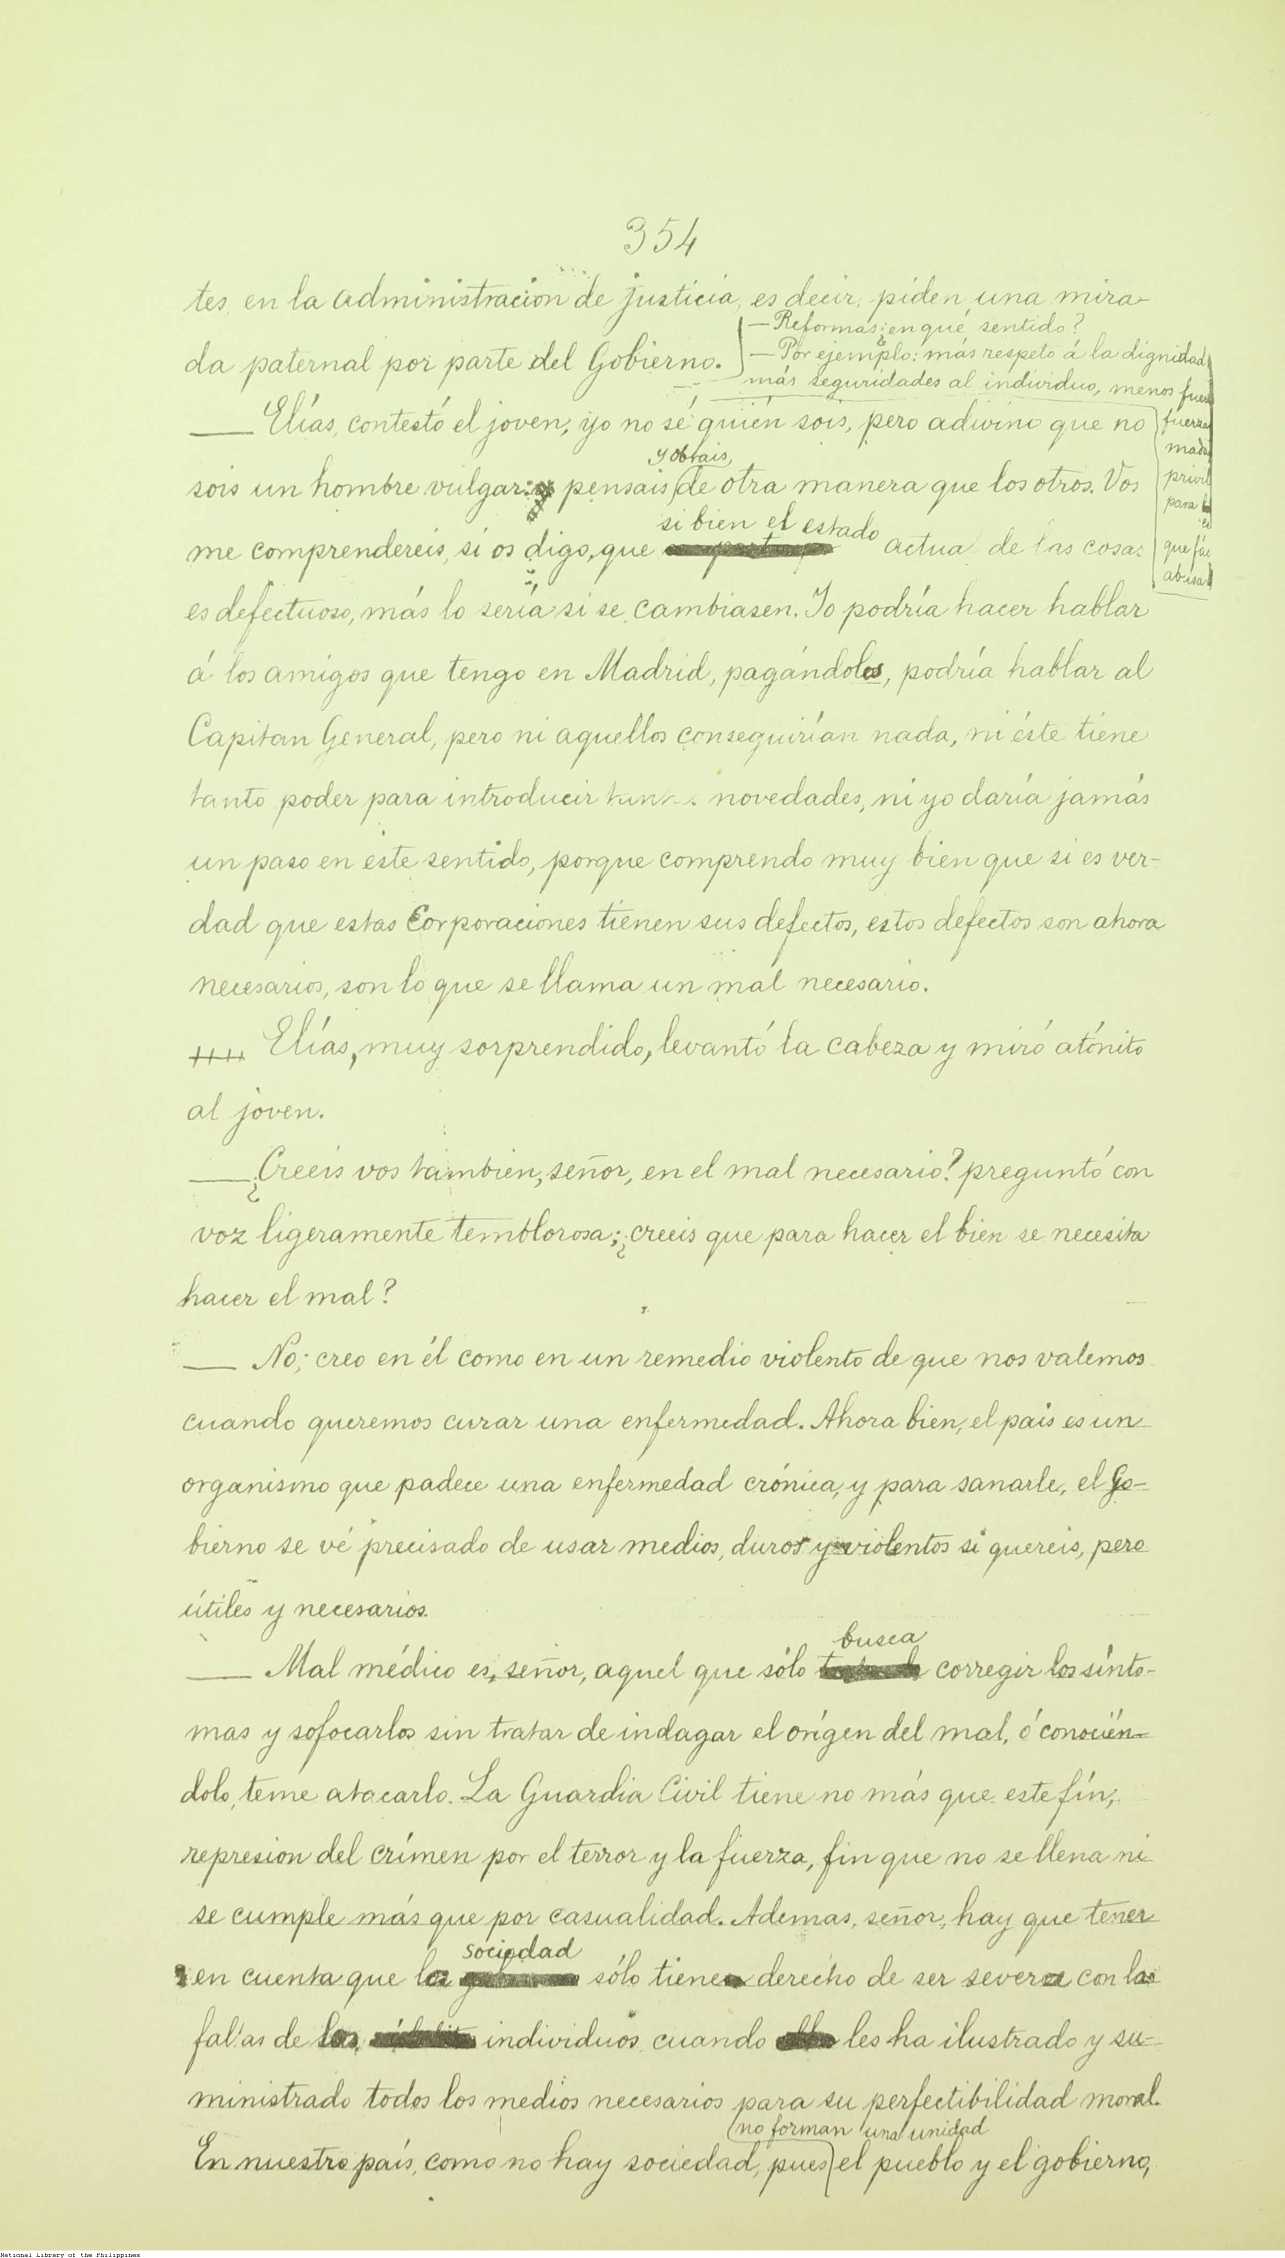 354
tes en la administracion de justicia, es decir, piden una mira-
da paternal por parte del Gobierno.
— Reformas ¿en qué sentido?
— Por ejemplo: más respeto á la dignidad
más seguridades al individuo, menos
fuerza
que
— Elías, contestó el joven, yo no sé quién sois, pero adivino que no
y obrais,
sois un hombre vulgar: pensais de otra manera que los otros. Vos
si bien el estado
me comprendereis, si os digo, que actual de las cosas
es defectuoso, más lo sería si se cambiasen. Yo podría hacer hablar
á los amigos que tengo en Madrid, pagándoles, podría hablar al
Capitan General, pero ni aquellos conseguirían nada, ni éste tiene
tanto poder para introducir novedades, ni yo daría jamás
un paso en este sentido, porque comprendo muy bien que si es ver-
dad que estas Corporaciones tienen sus defectos, estos defectos son ahora
necesarios, son lo que se llama un mal necesario.
Elías, muy sorprendido, levantó la cabeza y miró atónito
al joven.
— ¿Creeis vos tambien, señor, en el mal necesario? preguntó con
voz ligeramente temblorosa; ¿creeis que para hacer el bien se necesita
hacer el mal?
— No; creo en él como en un remedio violento de que nos valemos
cuando queremos curar una enfermedad. Ahora bien, el país es un
organismo que padece una enfermedad crónica, y para sanarle, el Go-
bierno se vé precisado de usar medios, duros y violentos si quereis, pero
útiles y necesarios.
busca
— Mal médico es, señor, aquel que sólo corregir los sínto-
mas y sofocarlos sin tratar de indagar el orígen del mal, ó conocién-
dolo, teme atacarlo. La Guardia Civil tiene no más que este fín;
represion del crímen por el terror y la fuerza, fin que no se llena ni
se cumple más que por casualidad. Ademas, señor, hay que tener
sociedad
en cuenta que la sólo tiene derecho de ser severa con las
faltas de los individuos cuando les ha ilustrado y su-
ministrado todos los medios necesarios para su perfectibilidad moral.
no forman una unidad
En nuestro país, como no hay sociedad, pues el pueblo y el gobierno,
National Library of the Philippines